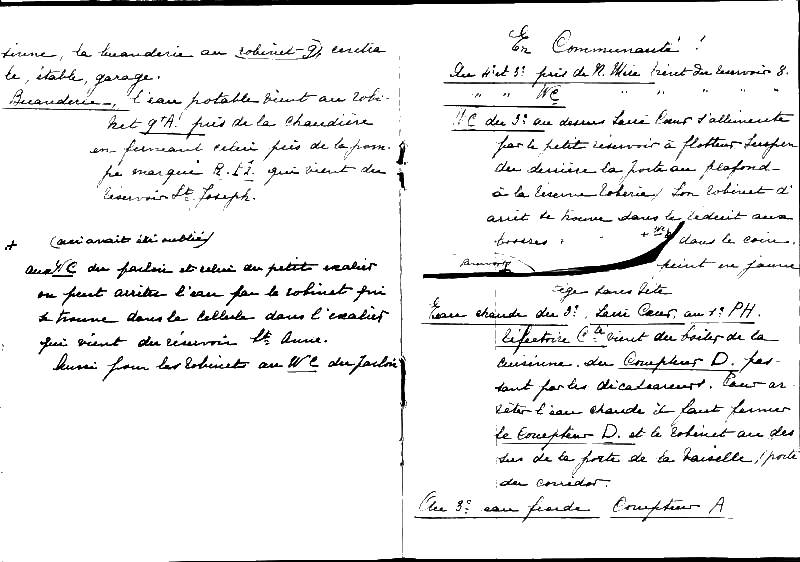 sinne, la buanderie au robinet gd, cerctia
le, étable, garage.
Buanderie, l'eau potable vient au robi-
net gr A! près de la chaudière
en fermant celui près de la pom-
pe marqué R. et L. qui vient du
réservoir St. Joseph.
+ (ceci avait été oublié)
aux WC du parloir et celui du petit escalier
on peut arrêter l'eau par le robinet qui
se trouve dans la cellule dans l'escalier
qui vient du réservoir Ste Anne.
Aussi pour les robinets au WC du parloir
En Communauté !
Au 4e et 3e près de N. Mère vient du réservoir 8.
" " WC " " " " "
WC du 3e au dessus Sacré Cœur s'alimente
par le petit réservoir à flotteur suspen
du derrière la porte au plafond
à la réserve roberie) Son robinet d'
arrêt se trouve dans le réduit aux
brosses : dans le coin.
peint en jaune
tige sans tête
Eau chaude du 3e, Sacré Cœur, au 1er PH.
Réfectoire Cté vient du boiler de la
cuisinne du Compteur D. pas-
sant par les décalcareurs. Pour ar-
rêter l'eau chaude il faut fermer
le Compteur D. et le robinet au des
sus de la porte de la vaiselle, (porte
du corridor.
Au 3e eau froide Compteur A